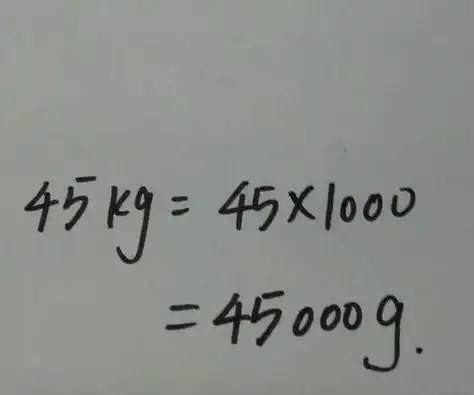 45kg = 45×1000
= 45000g.